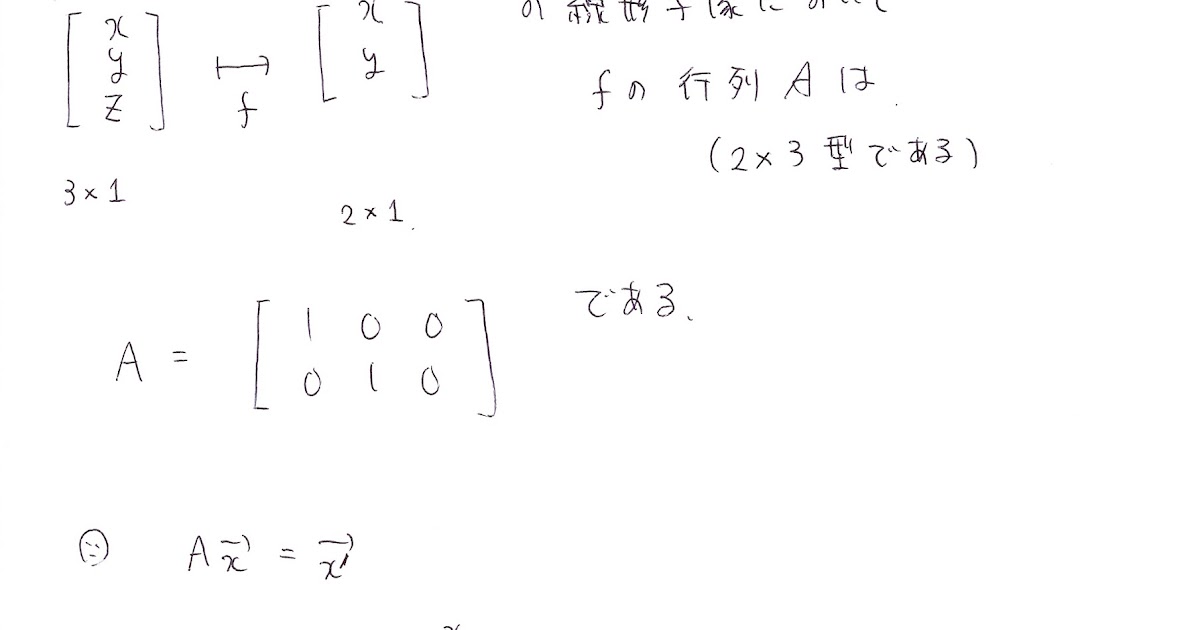 [x y z] ↦ f [x y] の線形写像において
fの行列Aは
(2×3型である)
3×1
2×1.
A = [1 0 0
0 1 0] である.
∵ Ax⃗ = x⃗'